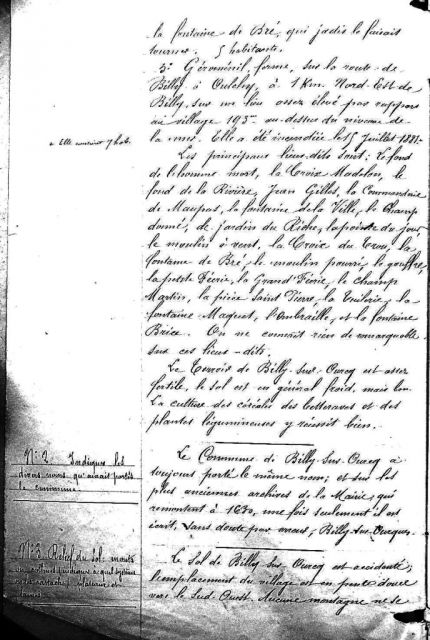 la fontaine de Bré, qui jadis le faisait
tourner. 5 habitants.
5° Géroménil, ferme, sur la route de
Billy à Oulchy, à 1 Km. Nord-Est de
Billy, sur un lieu assez élevé par rapport
au village 195 au-dessus du niveau de
la mer. Elle a été incendiée le 15 Juillet 1881.
Elle contient 7 hab.
Les principaux lieux-dits sont : Le fond
de l'homme mort, la Croix Madelon, le
fond de la Rivière, Jean Gilles, la Commanderie
de Maupas, la fontaine de la Ville, le Champ
donné, le jardin du Riche, la pointe du jour
le moulin à vent, la Croix du Trou, la
fontaine de Bré, le moulin pourri, le gouffre,
la petite Féerie, la Grand'Féerie, le champ
Martin, la pièce Saint Pierre, la Tuilerie, la
fontaine Maquet, l'Ambraille, et la fontaine
Brice. On ne connaît rien de remarquable
sur ces lieux-dits.
Le Terroir de Billy-sur-Ourcq est assez
fertile, le sol est en général froid, mais bon.
La culture des céréales des betteraves et des
plantes légumineuses y réussit bien.
N° 2. Indiquer les
divers noms qu'aurait portés
la commune.
La Commune de Billy-Sur-Ourcq a
toujours porté le même nom; et sur les
plus anciennes archives de la Mairie, qui
remontent à 1670, une fois seulement il est
écrit, sans doute par erreur, Billy-sur-Ourque.
N° 3. Relief du sol : monts
Le Sol de Billy Sur Ourcq est accidenté,
l'emplacement du village est en pente douce
vers le Sud-Ouest. Aucune montagne ne se